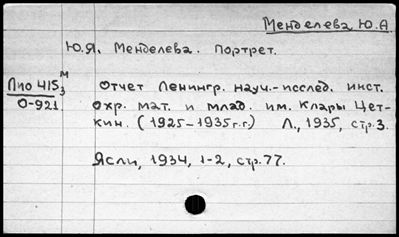 Менделева Ю.А
Ю.Я. Менделева. Портрет.
Пио 415 м/3 Отчет Ленингр. науч.-исслед. инст.
О-921 охр. мат. и млад. им. Клары Цет-
кин. (1925-1935 г.г.) Л., 1935, стр. 3.
Ясли, 1934, 1-2, стр. 77.